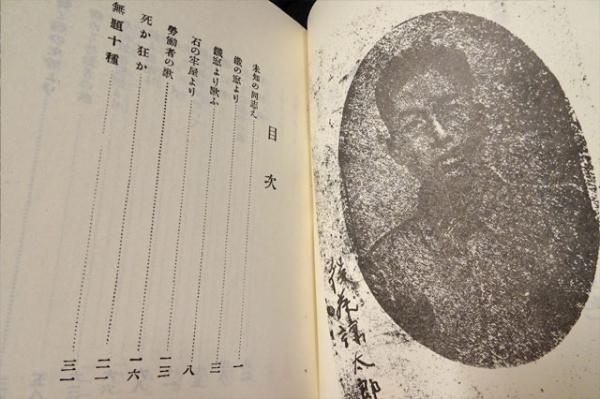 後藤謙太郎
目次
未知の同志え……一
鐵の窓より……三
鐵窓より歌ふ……八
石の牢屋より……一三
勞働者の歌……一六
死か狂か……二一
無題十種……三一